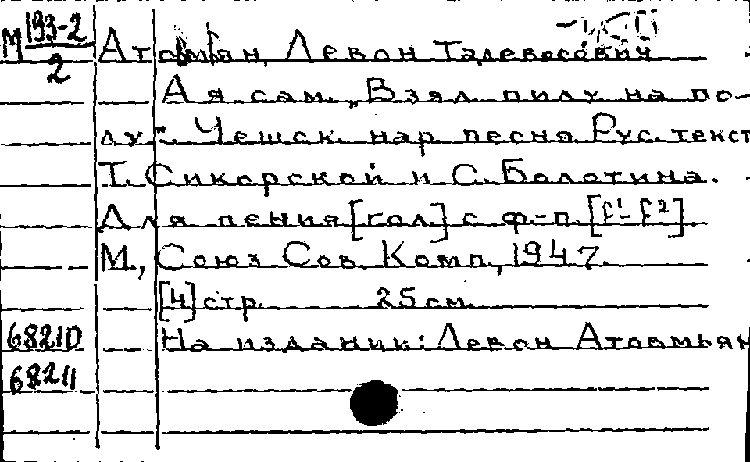 М 193-2/2
Атовмян, Левон Тадевосович
А я сам. „Взял пилу на по-
лу". Чешск. нар песня Рус. текст
Т. Сикорской и С. Болотина.
Для пения [гол] с ф-п. [f¹-f²].
М., Союз Сов. Комп., 1947.
[4] стр. 25 см.
68210 На издании: Левон Атовмьян
68211